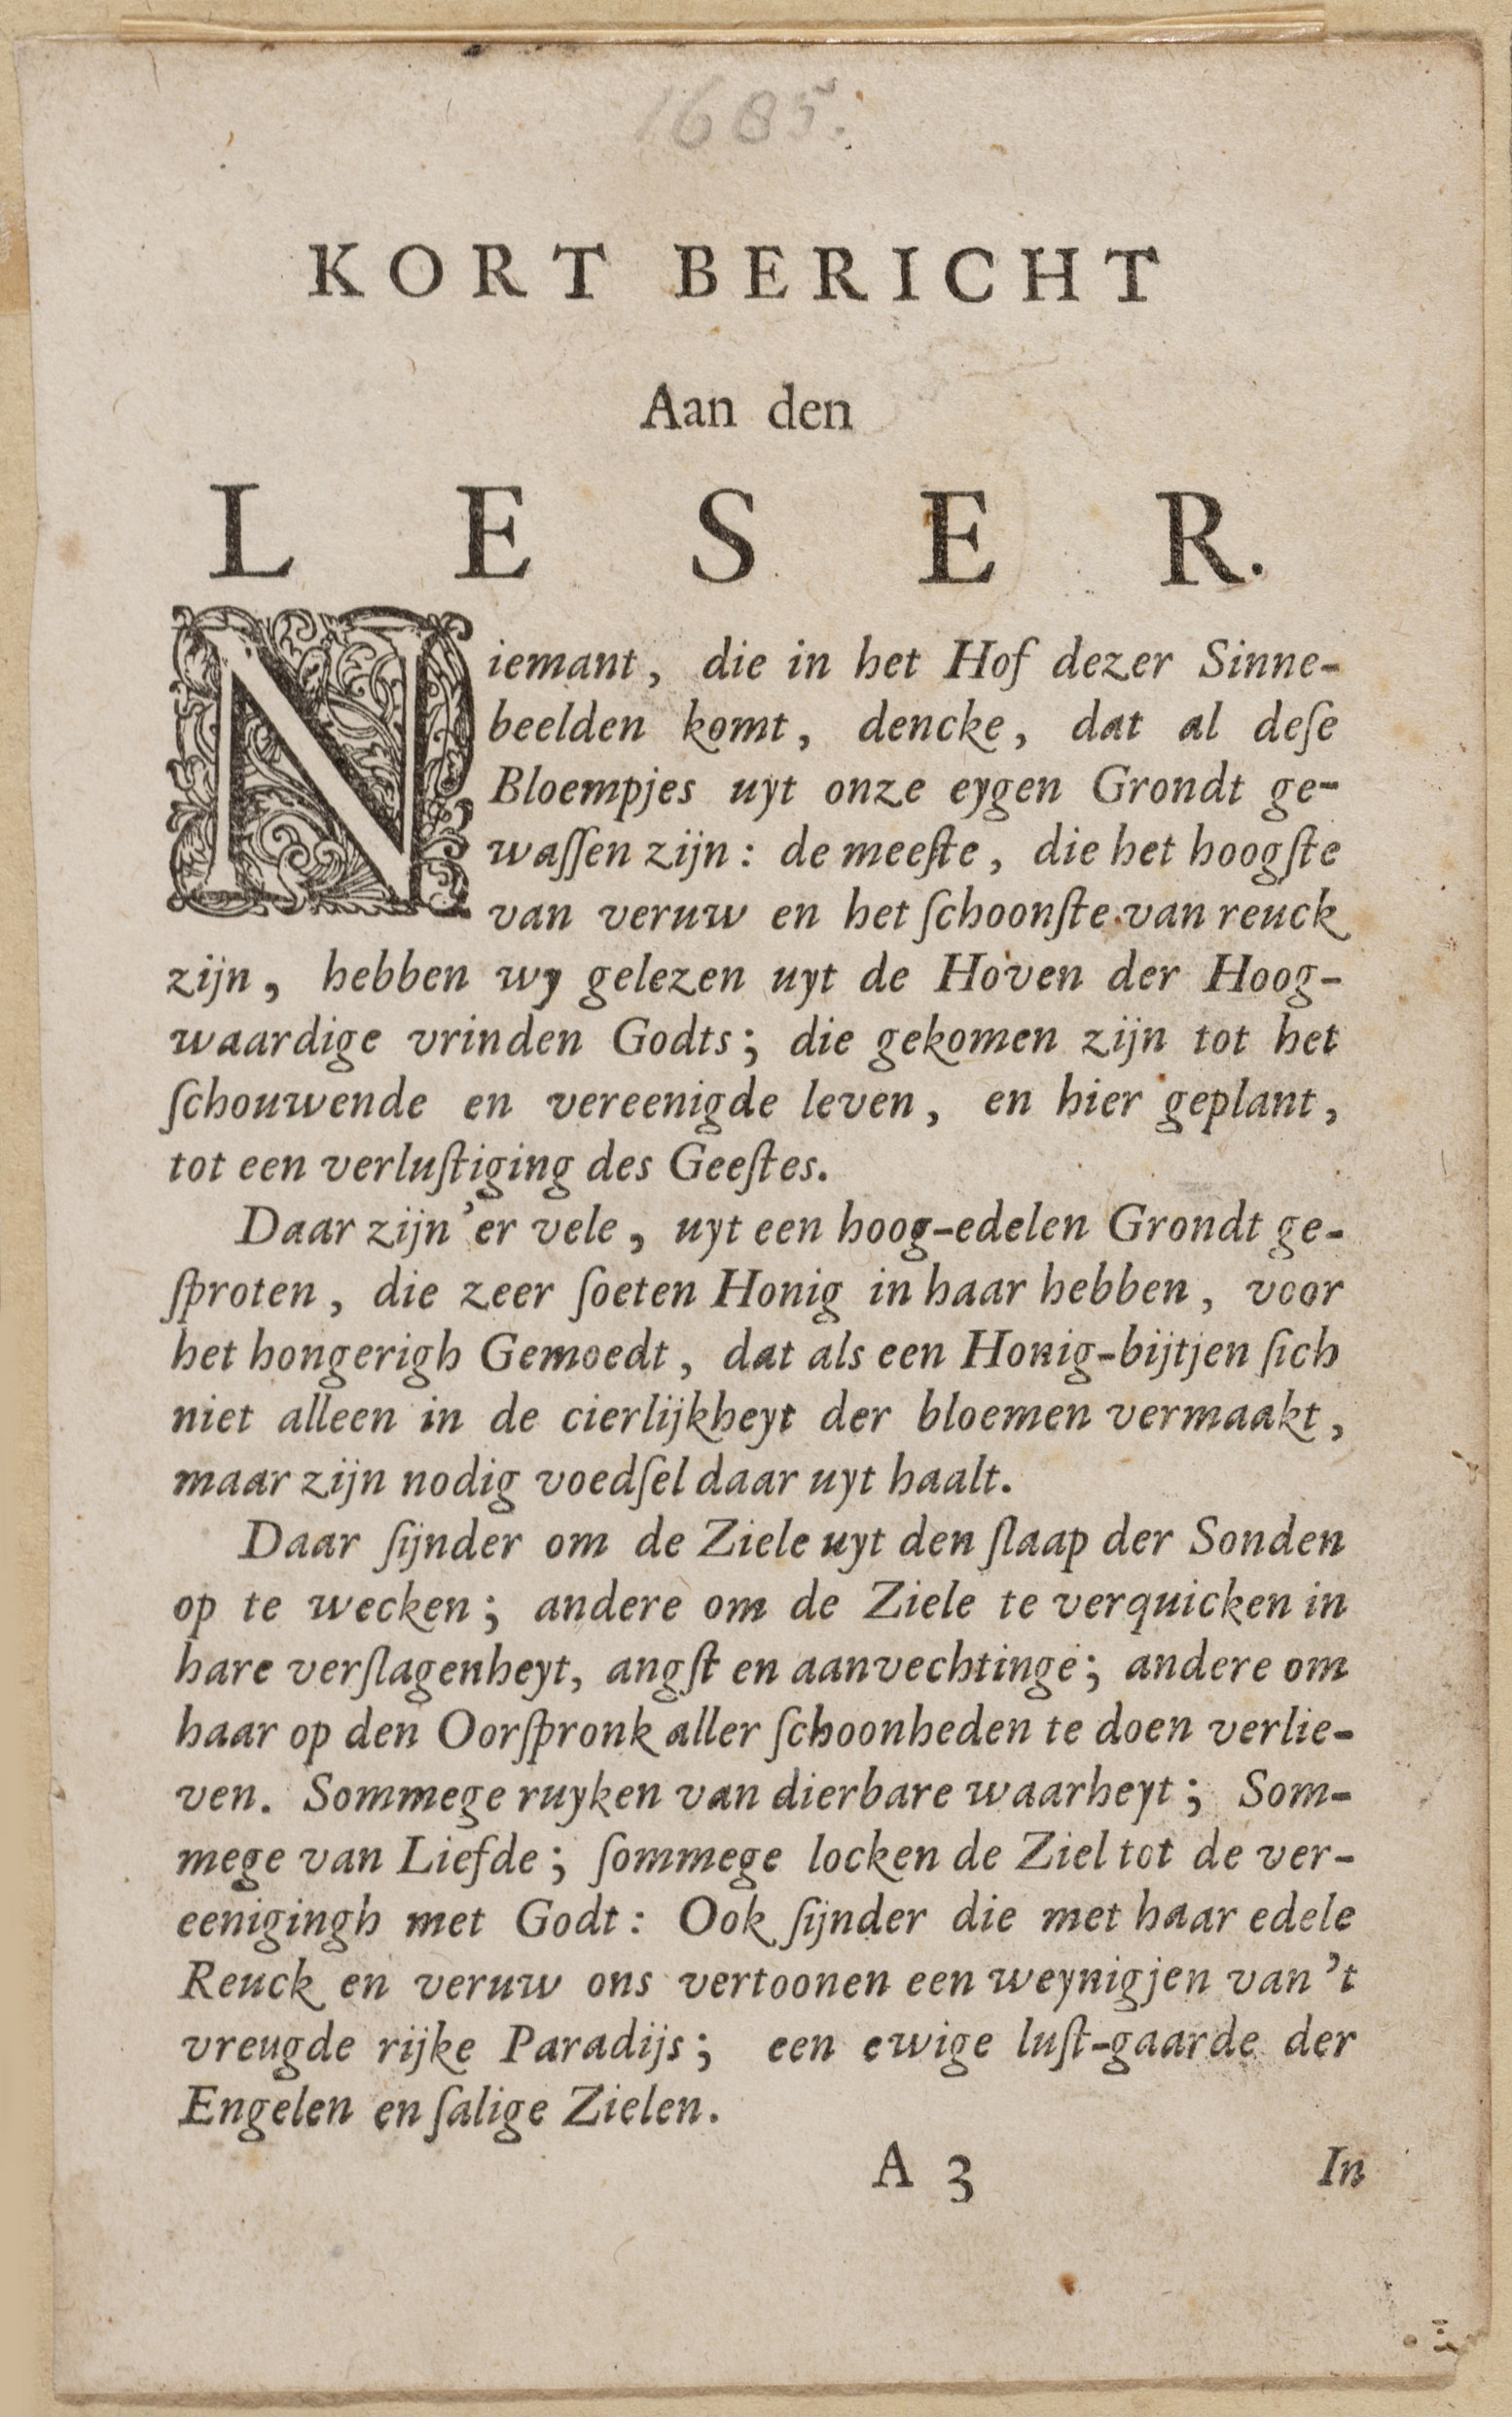 1685.
KORT BERICHT
Aan den
LESER.
Niemant, die in het Hof dezer Sinne-
beelden komt, dencke, dat al deſe
Bloempjes uyt onze eygen Grondt ge-
waſſen zijn: de meeſte, die het hoogſte
van veruw en het ſchoonſte van reuck
zijn, hebben wy gelezen uyt de Hoven der Hoog-
waardige vrinden Godts; die gekomen zijn tot het
ſchouwende en vereenigde leven, en hier geplant,
tot een verluſtiging des Geeſtes.
Daar zijn'er vele, uyt een hoog-edelen Grondt ge-
ſproten, die zeer ſoeten Honig in haar hebben, voor
het hongerigh Gemoedt, dat als een Honig-bijtjen ſich
niet alleen in de cierlijkheyt der bloemen vermaakt,
maar zijn nodig voedſel daar uyt haalt.
Daar ſijnder om de Ziele uyt den ſlaap der Sonden
op te wecken; andere om de Ziele te verquicken in
hare verſlagenheyt, angſt en aanvechtinge; andere om
haar op den Oorſpronk aller ſchoonheden te doen verlie-
ven. Sommege ruyken van dierbare waarheyt; Som-
mege van Liefde; ſommege locken de Ziel tot de ver-
eenigingh met Godt: Ook ſijnder die met haar edele
Reuck en veruw ons vertoonen een weynigjen van't
vreugde rijke Paradijs; een ewige luſt-gaarde der
Engelen en ſalige Zielen.
A 3 In